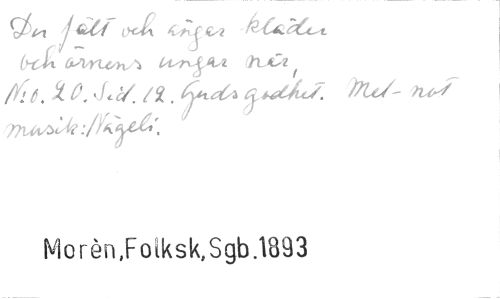 Du fält och ängar kläder
och örnens ungar när,
N:o. 20. Sid. 12. Guds godhet. Met-not
musik: Nägeli.
Morèn,Folksk,Sgb.1893